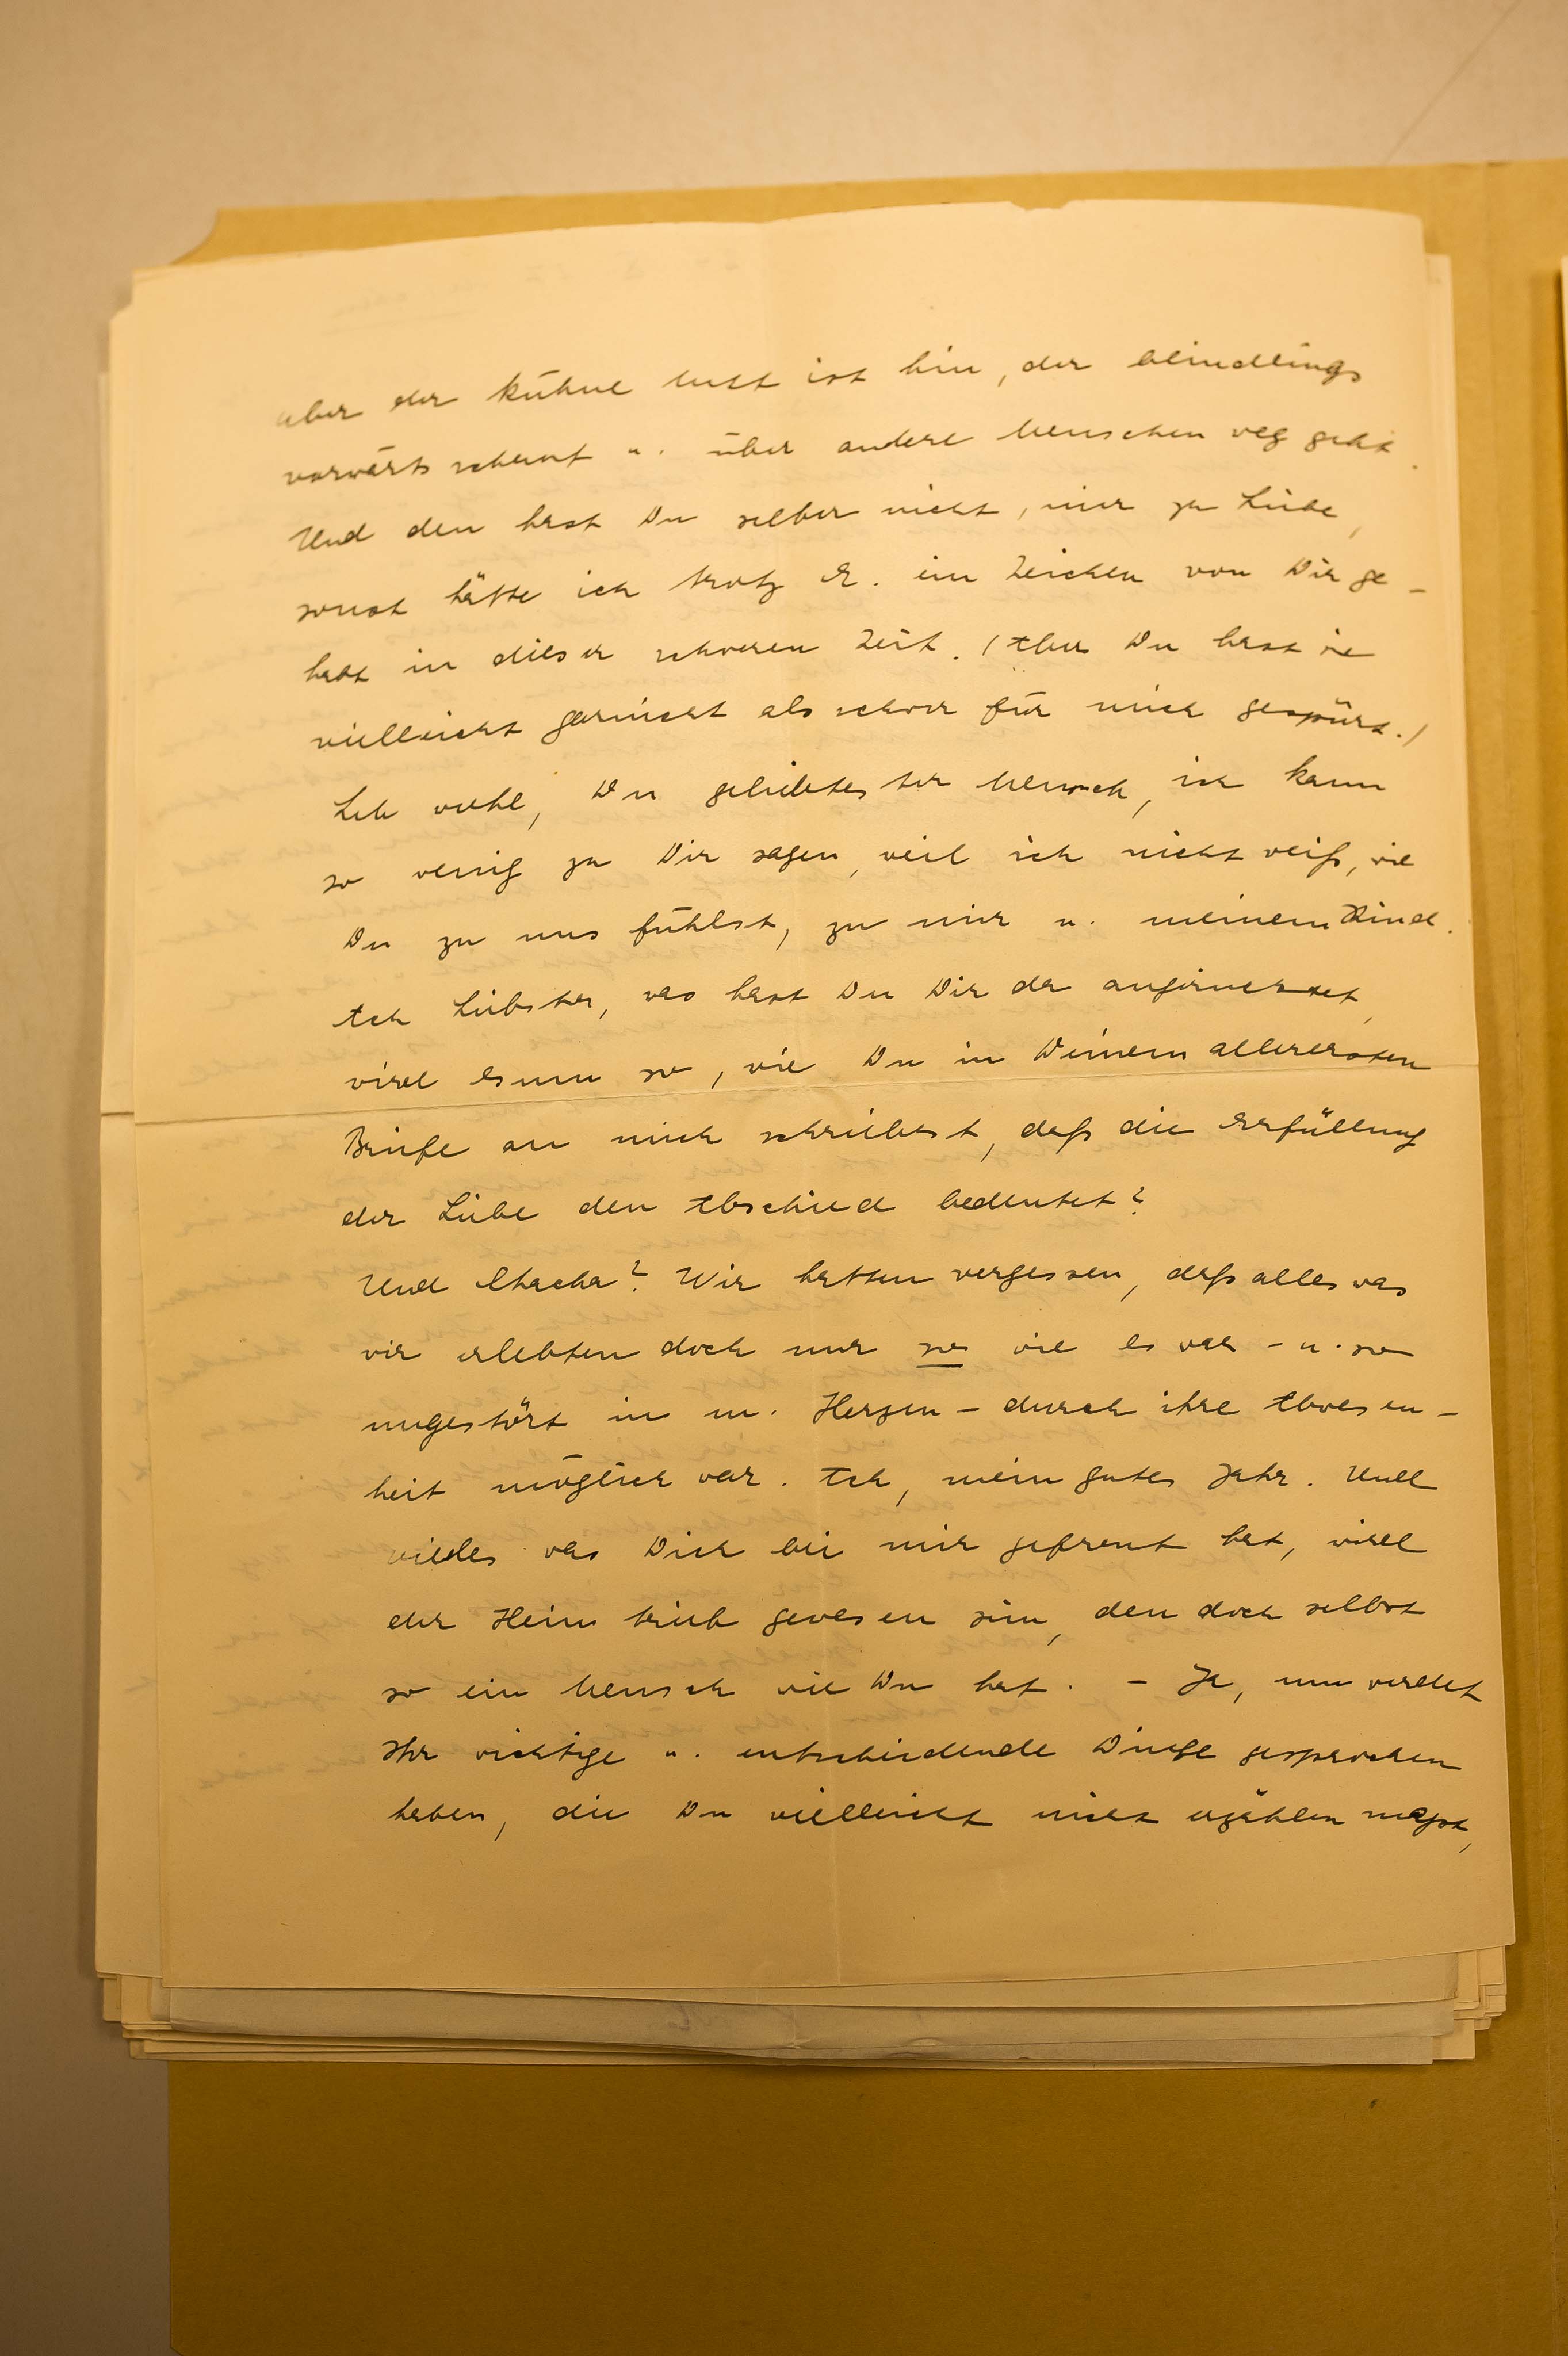 aber der kühne Mut ist hin, der blindlings
vorwärts schaut u. über andere Menschen weg geht.
Und den hast Du selber nicht, mir zu Liebe,
sonst hätte ich trotz E. ein Zeichen von Dir ge-
habt in dieser schweren Zeit. (Aber Du hast sie
vielleicht garnicht als schwer für mich gespürt.)
Leb wohl, Du geliebtester Mensch, ich kann
so wenig zu Dir sagen, weil ich nicht weiß, wie
Du zu uns fühlst, zu mir u. meinem Kind.
Ach Liebster, was hast Du Dir da
wird es nun so, wie Du in Deinem allerersten
Briefe an mich schriebst, daß die Erfüllung
der Liebe den Abschied bedeutet?
Und Chacha? Wir hatten vergessen, daß alles was
wir erlebten doch nur so wie es war - u. so
ungestört in m. Herzen - durch ihre Abwesen-
heit möglich war. Ach, mein gutes Jahr. Und
vieles was Dich bei mir gefreut hat, wird
der Heim trieb gewesen sein, den doch selbst
so ein Mensch wie Du hat. - Ja, nun werdet
Ihr wichtige u. entscheidende Dinge gesprochen
haben, die Du vielleicht nicht erzählen magst,